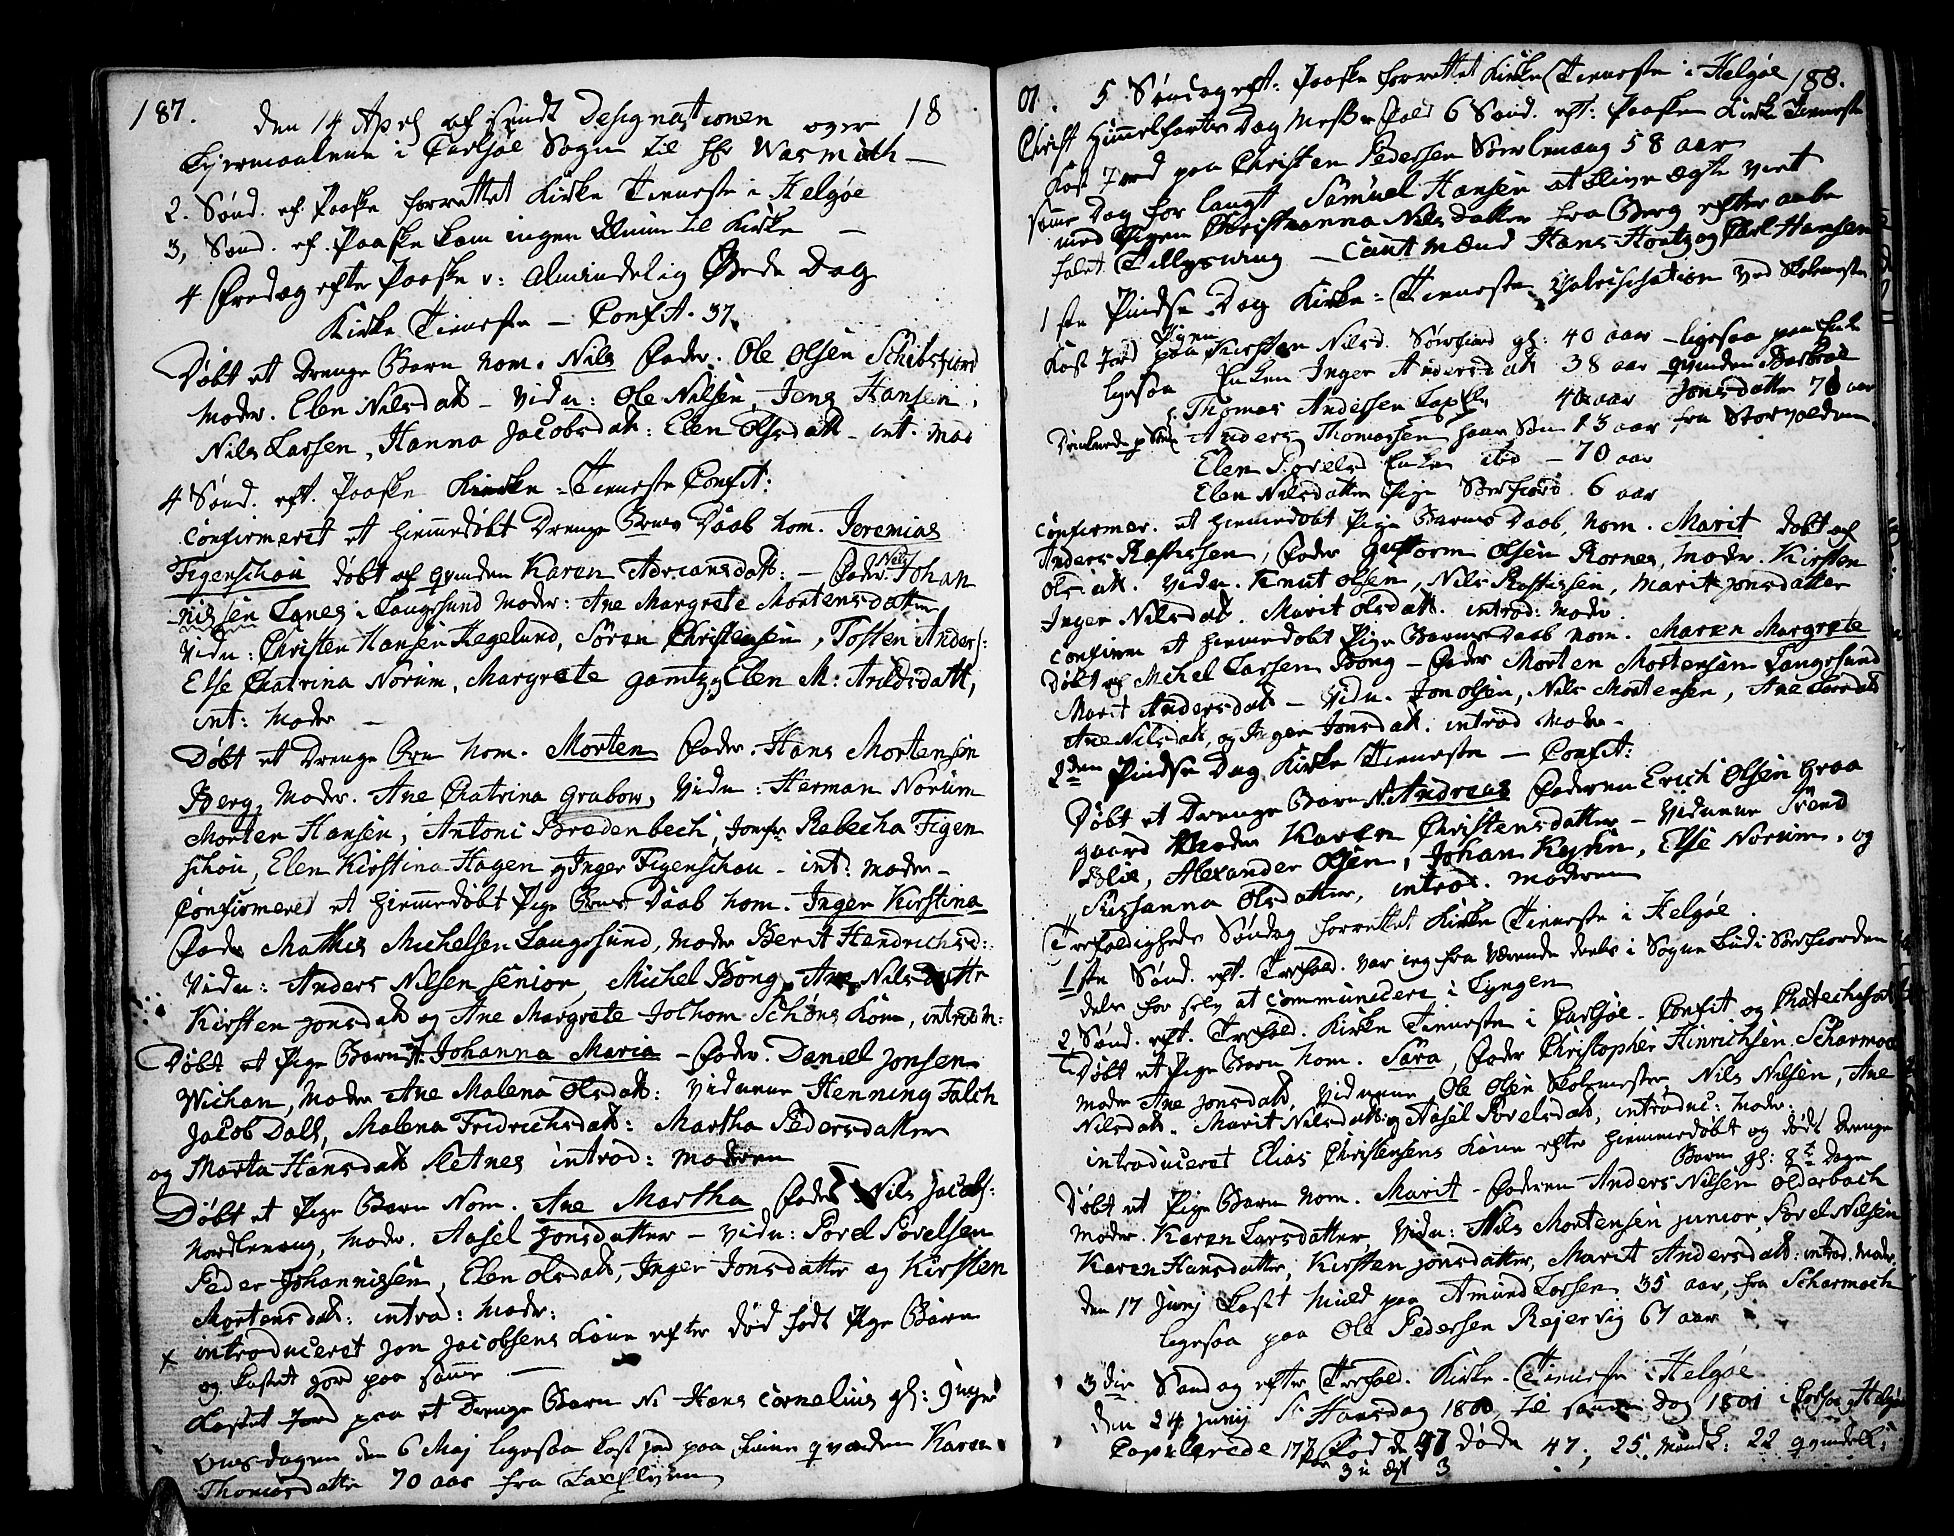 187. den 14 April afsendt Designationen over 18
Leiermaalene i Carlsøe Sogn til Hr Wasmuth —
2. Sønd. ef. Paaske forrettet Kirke Tieneste i Helgøe
3, Sønd. ef. Paaske kom ingen til Kirke —
4 Fredag efter Paaske v: Almindelig Bede Dag
Kirke Tieneste — Confit. 37.
Døbt et Drenge Barn nom. Nils Fader. Ole Olsen Schibsfiord
Moder. Elen Nilsdatt — Vidn: Ole Nilsen, Jens Hansen,
Nils Larsen, Hanna Jacobsdatt: Elen Olsdatt — int. Mod
4 Sønd. eft. Paaske Kirke-Tieneste Confit:
Confirmeret et hiemmedøbt Drenge Barns Daab nom. Jeremias
Figenschou døbt af Qvinden Karen Adriansdatt: — Fader. Nils Johan
Nilssen Lanes i Langsund Moder: Ane Margrete Mortensdatter
Vidn: Christen Hansen Hegelund, Søren Christensen, Tosten Anders:
Else Chatrina Norum, Margrete Gamtz og Elen M: Arildsdatt,
int: Moder —
Døbt et Drenge Brn nom. Morten Fader. Hans Mortensen
Berg, Moder. Ane Chatrina Grabow, Vidn: Herman Norum
Morten Hansen, Antoni Bredenbech, Jomfr Rebecha Figen
schou, Elen Kirstina Hagen og Inger Figenschou — int: Moder —
Confirmeret et hiemmedøbt Pige Barns Daab nom. Inger Kirstina
Fader Mathis Michelsen Langsund, Moder Berit Handrichsd:
Vidn: Anders Nilsen senior, Michel Bong, Ane Nilsdattr
Kirsten Jonsdatt og Ane Margrete Jolhom Schøns Kone, introd M:
Døbt et Pige Barn N. Johanna Maria — Fader. Daniel Jonsen
Wichan, Moder Ane Malena Olsdatt: Vidnene Henning Falch
Jacob Dall, Malena Fridrichsdatt: Martha Pedersdatter
og Marta Hansdatt Sletnes introd: Moderen
Døbt et Pige Barn Nom. Ane Martha Fader Nils Jacobs:
Nordlenang, Moder. Aasel Jonsdatter — Vidn: Povel Povelsen
Peder Johannissen, Elen Olsdatt, Inger Jonsdatter og Kirsten
Mortensdatt: introd: Moder:
x introduceret Jon Jacobsens Kone efter død født Pige Barn
og kastet Jord paa samme —
Kastet Jord paa et Drenge Barn N. Hans Cornelius gl: 9 uger
Onsdagen den 6 Maj ligesaa kast Jord paa Qvinden Karen
Thomasdatter 70 aar fra
01. 5 Søndag eft: Paaske forrettet Kirke Tieneste i Helgøe 188.
Christ Himmelfarts Dag Messe Fald 6 Sønd. eft: Paaske Kirke Tieneste
Kast Jord paa Christen Pedersen Sørlenang 58 aar
samme Dag forlangt Samuel Hansen at blive ægte viet
med Pigen Christianna Nilsdatter fra Berg efter aaben
Tillysning — Cautmænd Hans Hontz og Carl Hansen
1ste Pindse Dag Kirke-Tieneste Chatechisation ved Skolemester
Kast Jord paa Pigen Kirsten Nilsd. Sørfiord gl: 40 aar — ligesaa paa
ligesaa Enken Inger Andersdatt 38 aar qvinden Barbroe
Thomas Anderssen 40 aar Jonsdatter 70 aar
Anders Thomassen hans Søn 13 aar fra
Elen Povelsd Enken ibid — 70 aar
Elen Nilsdatter Pige Sørfiord. 6 aar
Confirmer. et hiemmedøbt Pige Barns Daab, nom. Marit døbt af
Anders Rastissen, Fader Guttorm Olsen Kornes, Moder. Kirsten
Olsdatt. Vidn. Knut Olsen, Nils Rastissen, Marit Jonsdatter
Inger Nilsdatt. Marit Olsdatt. introd: Moder
Confirm et hiemmedøbt Pige Barns Daab nom. Maren Margrete
Døbt af Michel Larsen Bong — Fader Morten Mortensen Langsund
Marit Andersdatt — Vidn. Jon Olsen, Nils Mortensen, Ane Larsdatt
Ane Nilsdatt, og Inger Jonsdatt. introd Moder —
2den Pindse Dag Kirke Tieneste — Confit:
Døbt et Drenge Barn N. Andreas Faderen Erich Olsen Graa
gaard Moder Karen Christensdatter — Vidnene Svend
Alexander Olsen, Johan Kysin, Else Norum, og
Susanna Olsdatter, introd. Moderen
Trefoldigheds Søndag forrettet Kirke Tieneste i Helgøe
1ste Sønd. eft. Trefold. var ieg fraværende deels i Sogne Bud i Sørfiorden
deels for selv at communicere i Lyngen
2 Sønd. eft. Trefold. Kirke Tieneste i Carlsøe — Confit og Chatechisat
Døbt et Pige Barn nom. Sara, Fader Christopher Hinrichsen Scharmoe
Moder Ane Jonsdatt, Vidnene Ole Olsen Skolemester, Nils Nilsen, Ane
Nilsdatt. Marit Nilsdatt og Aasel Povelsdatt, introduc: Moder:
introduceret Elias Christensens Kone efter hiemmedøbt og dødt Drenge
Barn gl: 8te Dage
Døbt et Pige Barn nom. Marit — Faderen Anders Nilsen Olderbach
Moder. Karen Larsdatter, Vidn: Nils Mortensen junior, Povel Nilsen
Karen Hansdatter, Kirsten Jonsdatter, Marit Andersdatt: introd. Moder.
den 17 Junij kastet Muld paa Amund Larsen 35 aar, fra Scharmoch
ligesaa paa Ole Pedersen Rejervig 67 aar
3die Søndag efter Trefold. Kirke-Tieneste i Helgøe
den 24 Junij St Hansdag 1800 til samme Dag 1801 i Carlsøe og Helgøe
Copulerede 17 Par Fødde 97 døde 47; 25 Mandk: 22 qvindek:
3 u 3